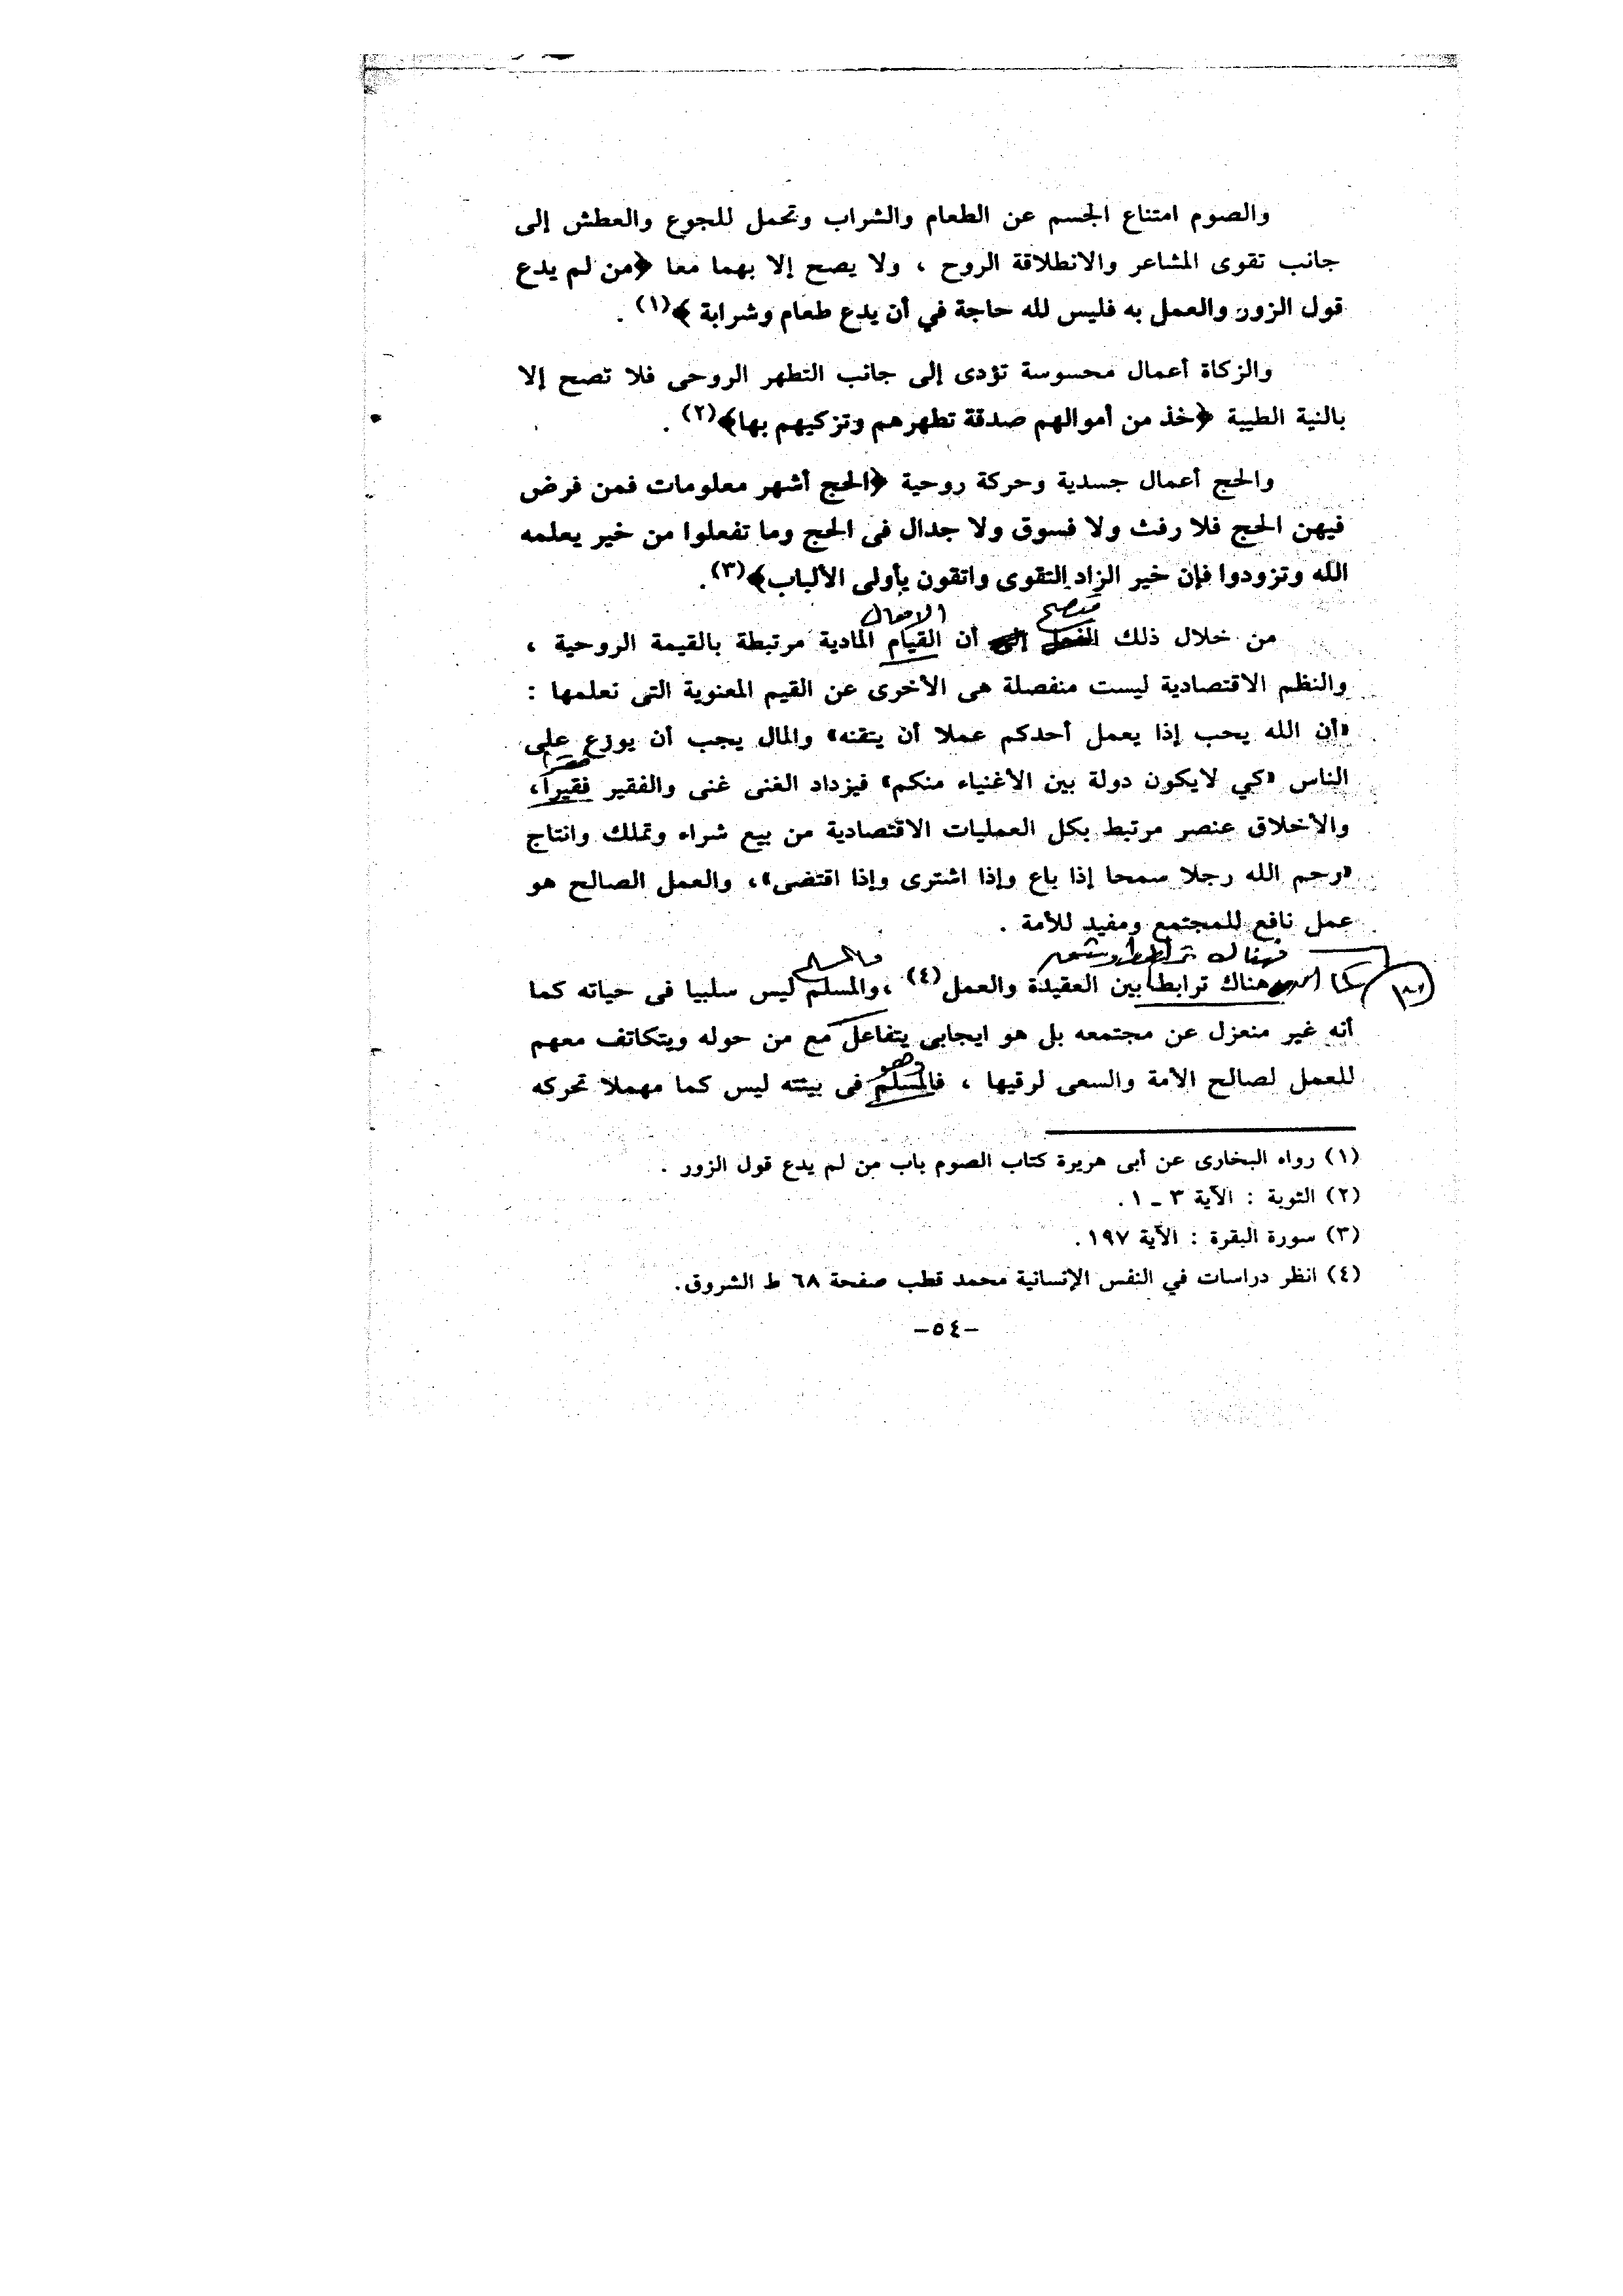 والصوم امتناع الجسم عن الطعام والشراب وتحمل للجوع والعطش إلى
جانب تقوى المشاعر والانطلاقة الروح ، ولا يصح إلا بهما معا ﴿من لم يدع
قول الزور والعمل به فليس لله حاجة في أن يدع طعام وشرابة ﴾(١) .
والزكاة أعمال محسوسة تؤدى إلى جانب التطهر الروحى فلا تصح إلا
بالنية الطيبة ﴿خذ من أموالهم صدقة تطهرهم وتزكيهم بها﴾(٢) .
والحج أعمال جسدية وحركة روحية ﴿الحج أشهر معلومات فمن فرض
فيهن الحج فلا رفث ولا فسوق ولا جدال فى الحج وما تفعلوا من خير يعلمه
الله وتزودوا فإن خير الزاد التقوى واتقون يأولى الألباب﴾(٣).
الافعال
من خلال ذلك أن القيام المادية مرتبطة بالقيمة الروحية ،
والنظم الاقتصادية ليست منفصلة هى الأخرى عن القيم المعنوية التى نعلمها :
«أن الله يحب إذا يعمل أحدكم عملا أن يتقنه» والمال يجب أن يوزع على
الناس «كي لايكون دولة بين الأغنياء منكم» فيزداد الغنى غنى والفقير فقيراً،
والأخلاق عنصر مرتبط بكل العمليات الاقتصادية من بيع شراء وتملك وانتاج
«رحم الله رجلا سمحا إذا باع وإذا اشترى وإذا اقتضى»، والعمل الصالح هو
عمل نافع للمجتمع ومفيد للأمة .
فهناك ترابط فالمسلم
هناك ترابط بين العقيدة والعمل(٤) ،والمسلم ليس سلبيا فى حياته كما
أنه غير منعزل عن مجتمعه بل هو ايجابى يتفاعل مع من حوله ويتكاتف معهم
وهو
للعمل لصالح الأمة والسعى لرقيها ، فالمسلم فى بيئته ليس كما مهملا تحركه
(١) رواه البخارى عن أبى هريرة كتاب الصوم باب من لم يدع قول الزور .
(٢) التوبة : الآية ٣ ـ ١ .
(٣) سورة البقرة : الآية ١٩٧ .
(٤) انظر دراسات في النفس الإنسانية محمد قطب صفحة ٦٨ ط الشروق.
-٥٤-